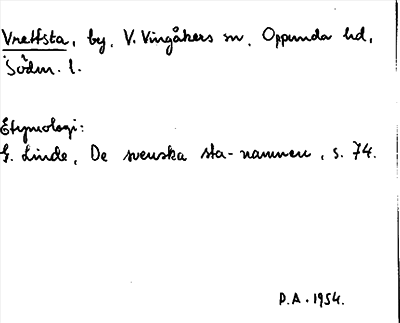 Vrettsta, by, V. Vingåkers sn, Oppunda hd,
Södm. l.
Etymologi:
G. Linde, De svenska sta-namnen, s. 74.
P.A. 1954.